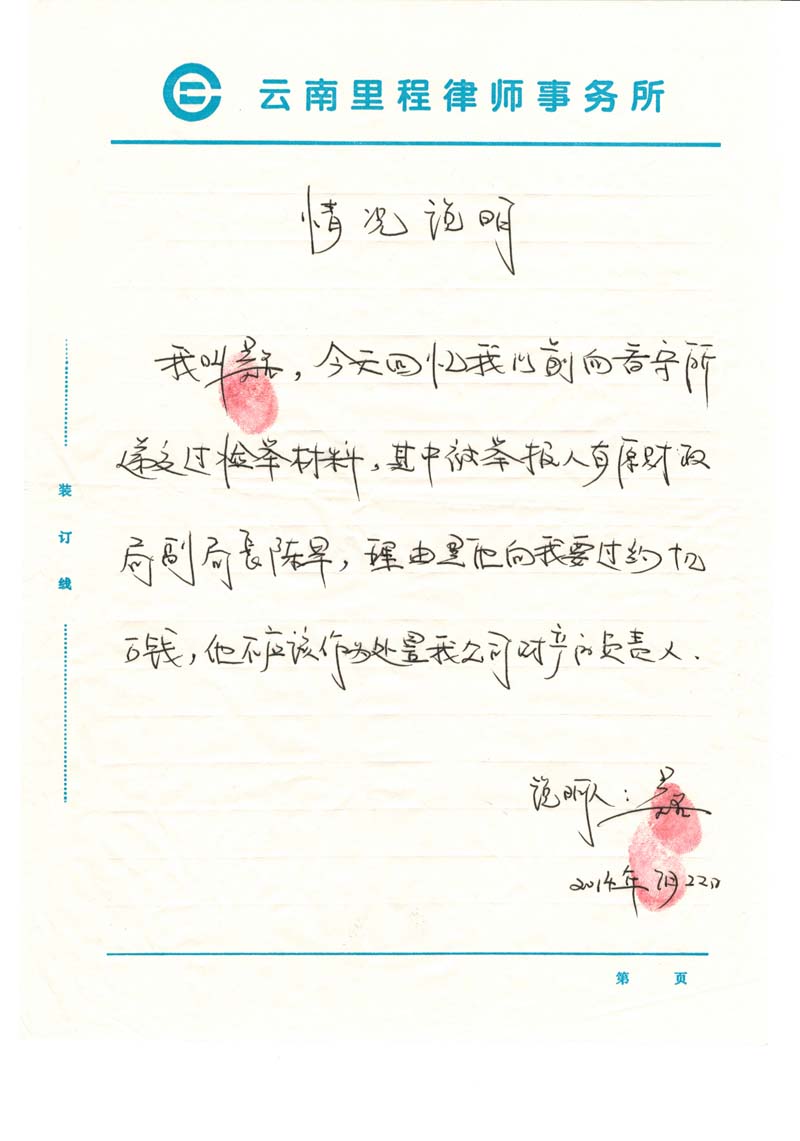 云南里程律师事务所
情况说明
我叫，今天回忆我以前向看守所
递交过检举材料，其中被举报人有原财政
局副局长陈旱，理由是他向我要过约
百钱，他不应该作为处置我公司财产的负责人．
说明人：
2014年7月22日
装订线
第 页